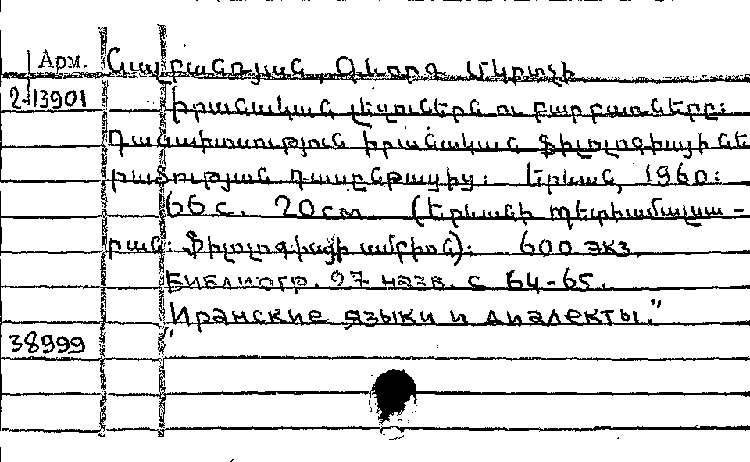 Арм. Նալբանդյան, Գևորգ Մկրտչի
2-13901 Իրանական լեզուներն ու բարբառները:
Դասախոսություն իրանական ֆիլոլոգիայի նե
րածության դասընթացից: Երևան, 1960:
66 с. 20 см (Երևանի պետհամալսա-
րան: Ֆիլոլոգիայի ամբիոն): 600 экз.
Библиогр. 27 назв. с 64-65.
"Иранские языки и диалекты."
38999